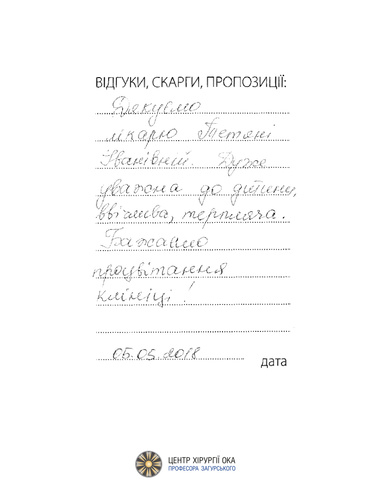 ВІДГУКИ, СКАРГИ, ПРОПОЗИЦІЇ:
Дякуємо
лікарю Тетяні
Іванівній. Дуже
уважна до дитини,
ввічлива, терпляча.
Бажаємо
процвітання
клініці!
05.05.2018
дата
ЦЕНТР ХІРУРГІЇ ОКА
ПРОФЕСОРА ЗАГУРСЬКОГО